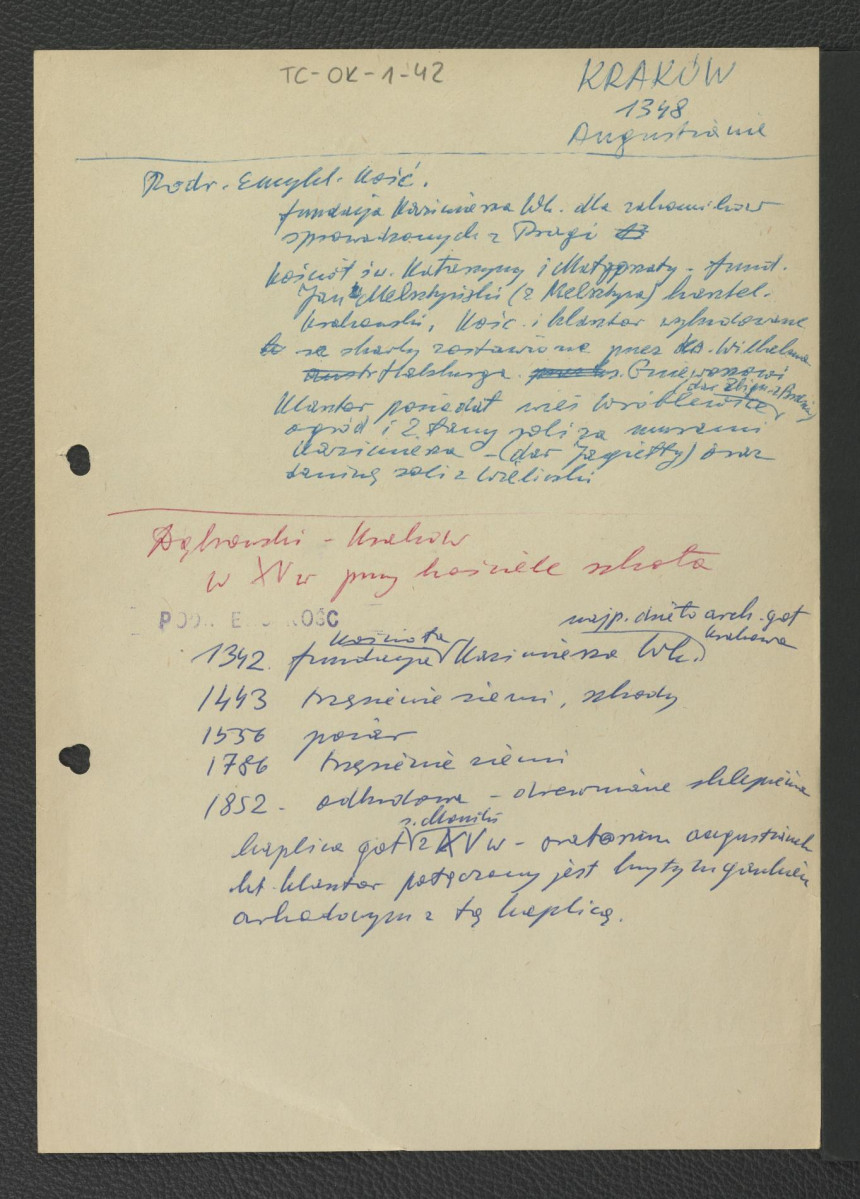 TC-OK-1-42
KRAKÓW
1348
Augustianie
Podr. Encykl. Kość.
fundacja Kazimierza Wk. dla zakonników
sprowadzonych z Pragi
Kościół św. Katarzyny i Małgorzaty - fund.
Jan Melsztyński (z Melsztyna) kasztel.
Krakowski, Kośc. i klasztor wybudowane
za skarby zostawione przez ks. Wilhelma
Habsburga Gniewoszowi
Klasztor posiadał wieś Wróblewice
(dar Zbign. z Brzezia)
ogród i 2 łany roli za murami
Kazimierza - (dar Jagiełły) oraz
daninę soli z Wieliczki
Dąbrowski - Kraków
w XV w przy kościele szkoła
najp. dzieło arch. got
Krakowa
1342. fundacja kościoła Kazimierza Wk.
1443 trzęsienie ziemi, szkody
1556 pożar
1786 trzęsienie ziemi
1852 - odbudowa - drewniane sklepienia
kaplica got ś. Moniki z XV w - oratorium augustianek
kt. klasztor połączony jest krytym gankiem
arkadowym z tą kaplicą.